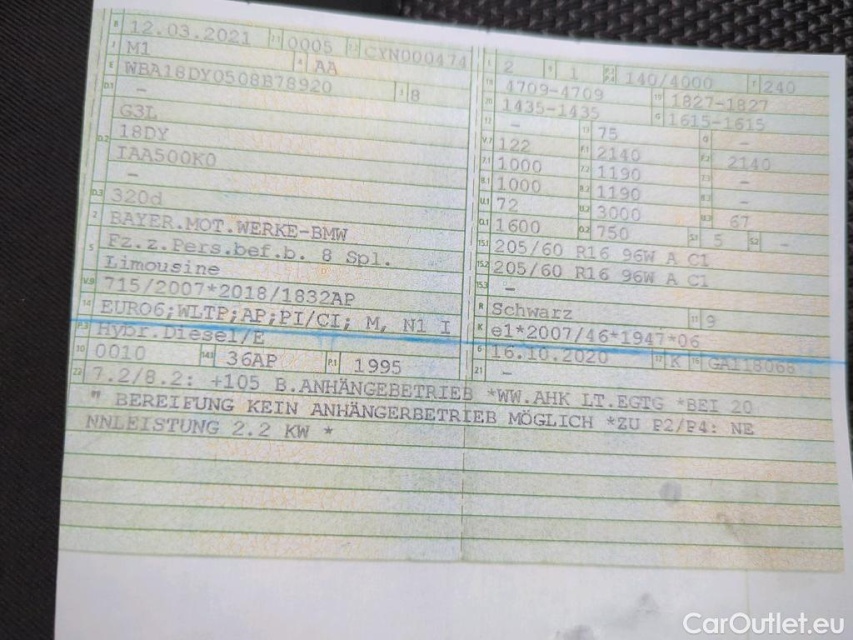 B 12.03.2021 2.1 0005 2.2 CYN000474
J M1 4 AA
E WBA18DY0508B78920 3 8
D.1 -
G3L
D.2 18DY
IAA500K0
-
D.3 320d
2 BAYER.MOT.WERKE-BMW
5 Fz.z.Pers.bef.b. 8 Spl.
Limousine
V.9 715/2007*2018/1832AP
14 EURO6;WLTP;AP;PI/CI; M, N1 I
P.3 Hybr.Diesel/E
10 0010 14.1 36AP P.1 1995
22 7.2/8.2: +105 B.ANHÄNGEBETRIEB *WW.AHK LT.EGTG *BEI 20
" BEREIFUNG KEIN ANHÄNGERBETRIEB MÖGLICH *ZU P2/P4: NE
NNLEISTUNG 2.2 KW *
L 2 9 1 P.2 P.4 140/4000 T 240
18 4709-4709 19 1827-1827
20 1435-1435 G 1615-1615
12 - 13 75 Q -
V.7 122 F.1 2140 F.2 2140
7.1 1000 7.2 1190 7.3 -
8.1 1000 8.2 1190 8.3 -
U.1 72 U.2 3000 U.3 67
O.1 1600 O.2 750 S.1 5 S.2 -
15.1 205/60 R16 96W A C1
15.2 205/60 R16 96W A C1
15.3 -
R Schwarz 11 9
K e1*2007/46*1947*06
6 16.10.2020 17 K 16 GA118068
21 -
CarOutlet.eu